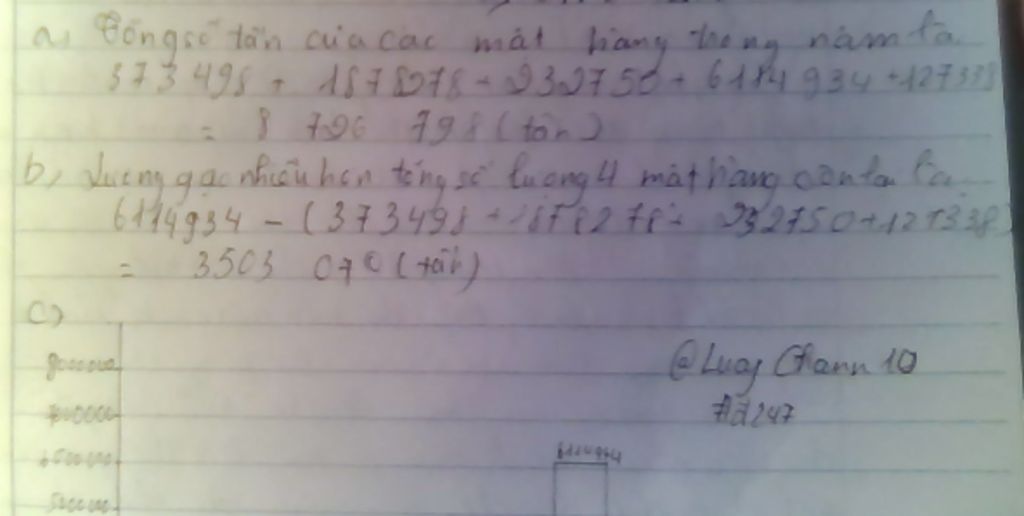 a, Tổng số tấn của các mặt hàng trong năm là.
373 498 + 1878278 + 232750 + 6184 934 + 127338
= 8 796 798 (tấn)
b, Lượng gạo nhiều hơn tổng số lượng 4 mặt hàng còn lại là.
6114934 - (373498 + 1878278 + 232750 + 127338)
= 3503 070 (tấn)
c)
8000000
@Luaj Channn 10
7000000
Ad247
6500000
6114934
5000000